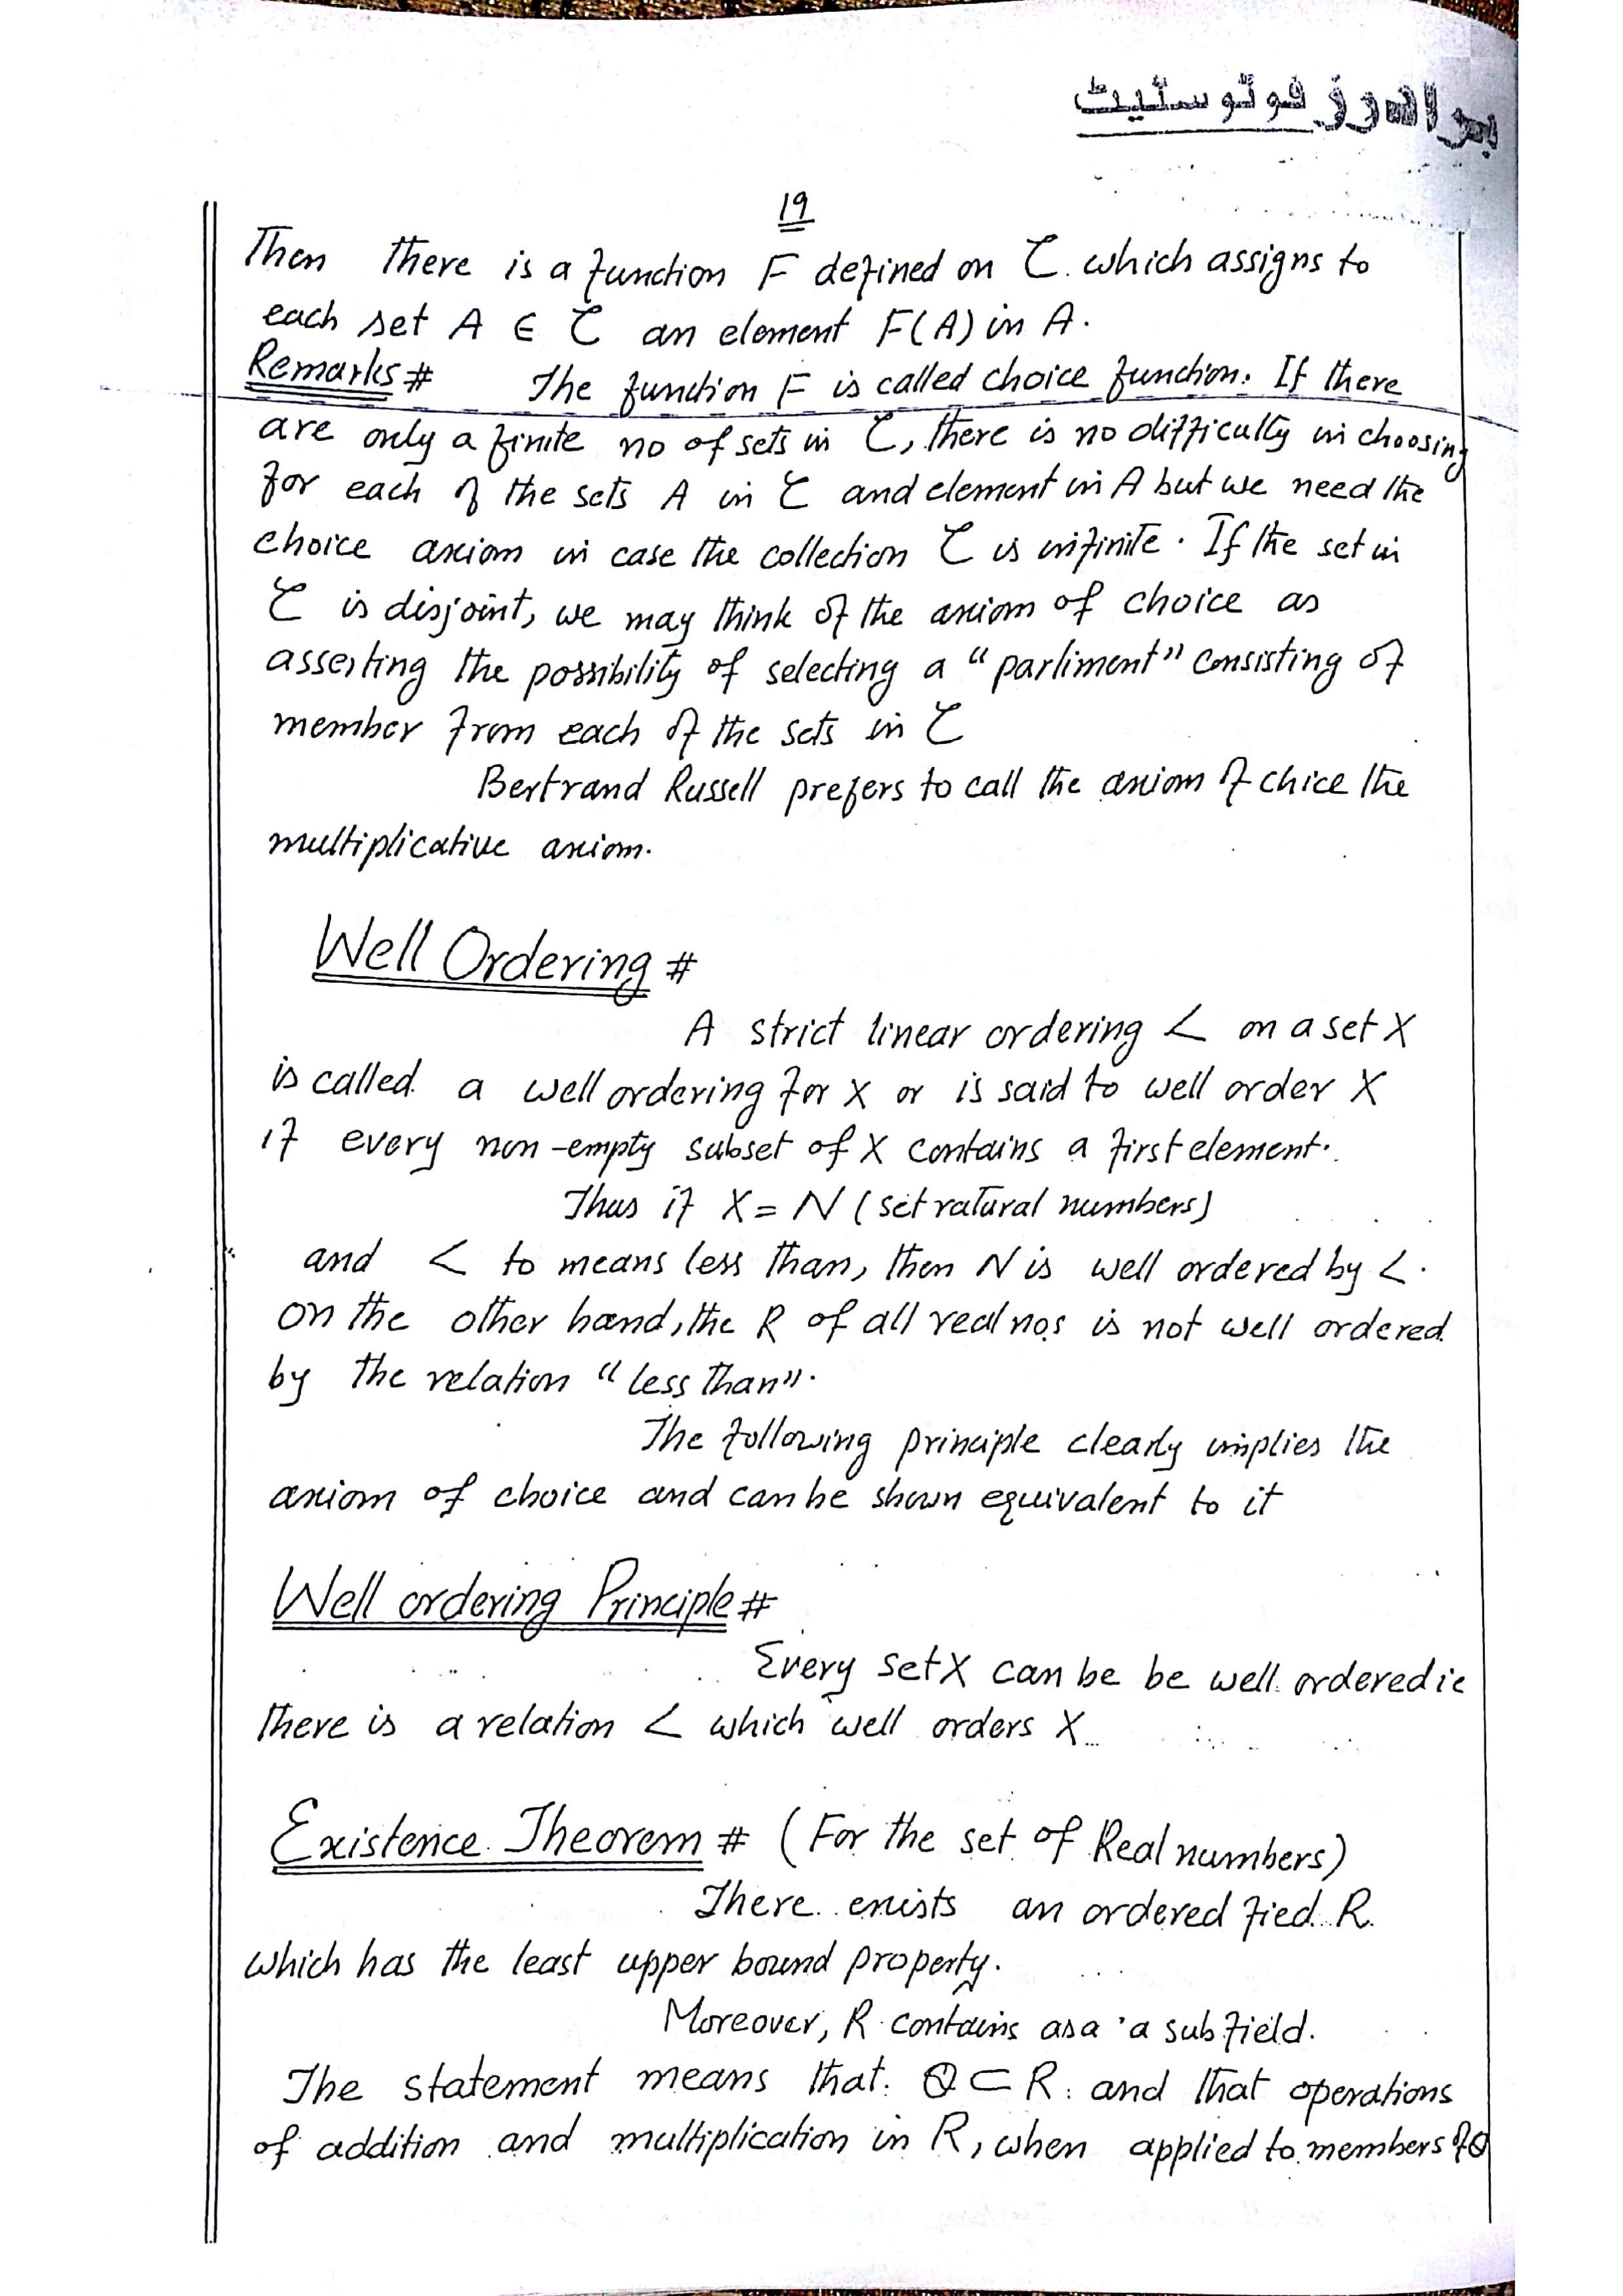 برادرز فوٹوسٹیٹ
19
Then there is a function F defined on ℭ. which assigns to
each set A ∈ ℭ an element F(A) in A.
Remarks # The function F is called choice function. If there
are only a finite no of sets in ℭ, there is no difficulty in choosing
for each of the sets A in ℭ and element in A but we need the
choice axiom in case the collection ℭ is infinite. If the set in
ℭ is disjoint, we may think of the axiom of choice as
asserting the possibility of selecting a "parliment" consisting of
member from each of the sets in ℭ
Bertrand Russell prefers to call the axiom of chice the
multiplicative axiom.
Well Ordering #
A strict linear ordering < on a set X
is called a well ordering for X or is said to well order X
if every non-empty subset of X contains a first element.
Thus if X = N (set ratural numbers)
and < to means less than, then N is well ordered by <.
on the other hand, the R of all real nos is not well ordered
by the relation "less than".
The following principle clearly implies the
axiom of choice and can be shown equivalent to it
Well ordering Principle #
Every set X can be be well ordered ie
there is a relation < which well orders X
Existence Theorem # (For the set of Real numbers)
There exists an ordered fied R
which has the least upper bound property.
Moreover, R contains asa a subfield.
The statement means that Q ⊂ R and that operations
of addition and multiplication in R, when applied to members of Q